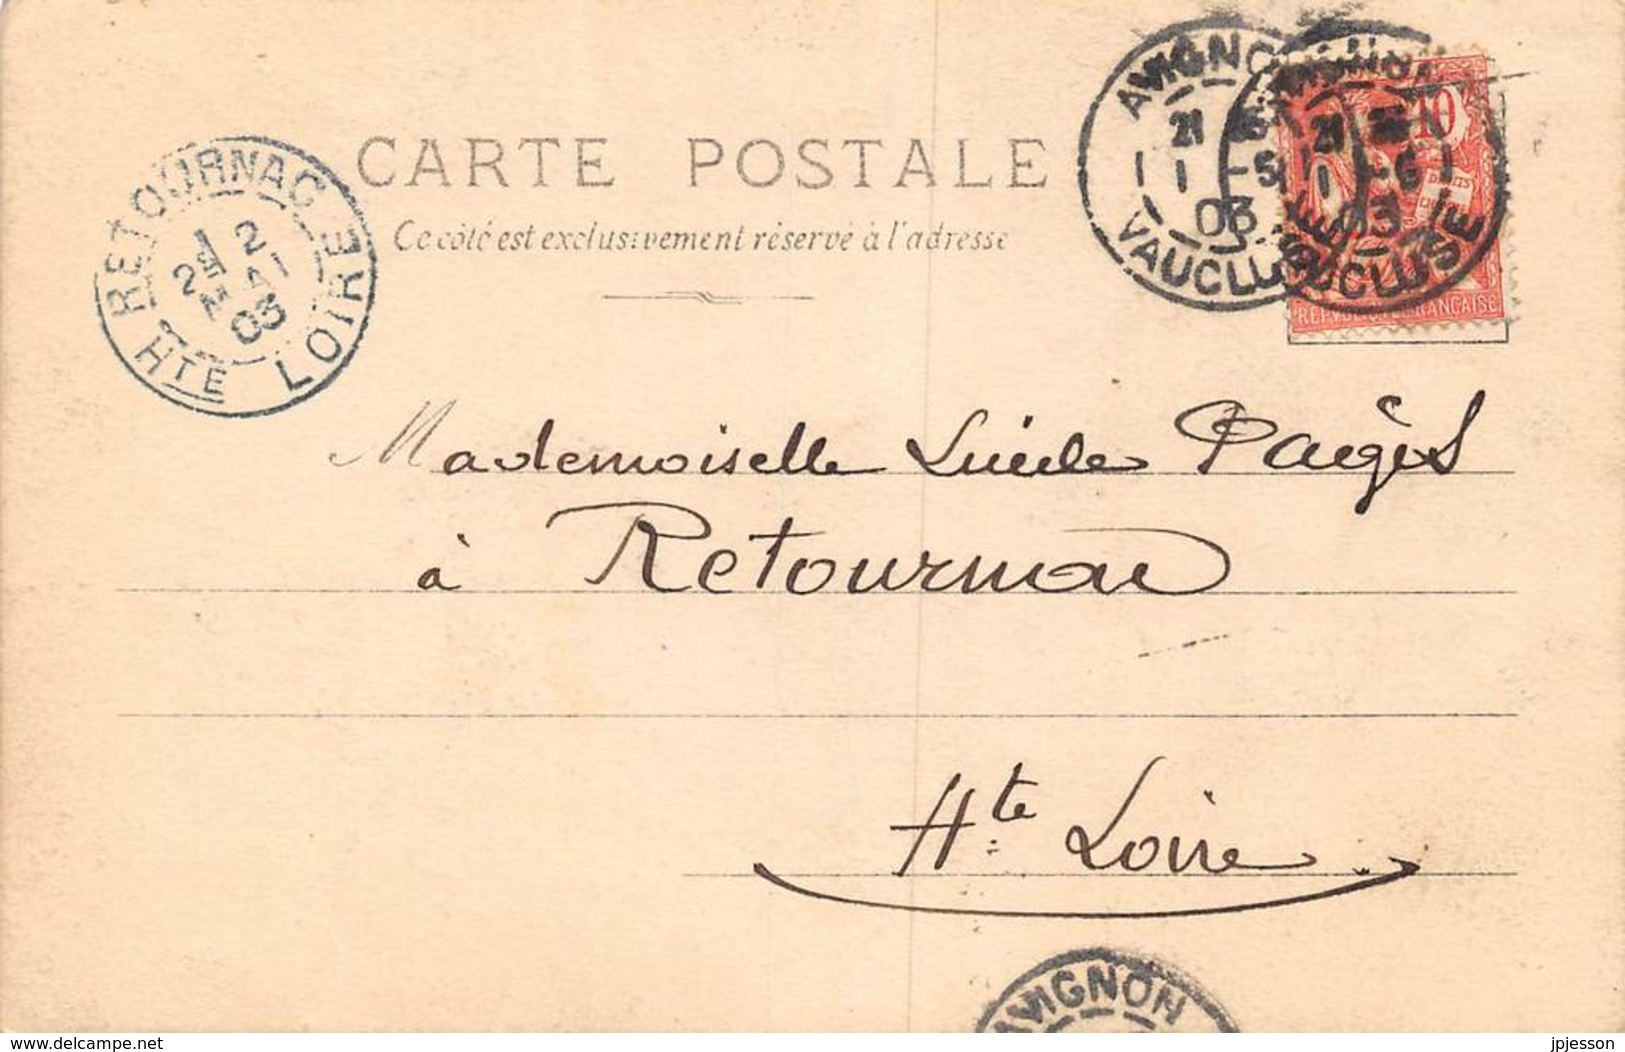 AVIGNON
21
1 -5
03
VAUCLUSE
21
1
03
VAUCLUSE
10
DROITS
REPVBLIQVE FRANÇAISE
CARTE POSTALE
Ce côté est exclusivement réservé à l'adresse
RETOURNAC
2
MAI
03
HTE LOIRE
Mademoiselle Lucile Pagès
à Retournac
Hte Loire
AVIGNON
www.delcampe.net
jpjesson